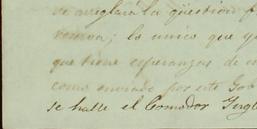 se arreglará la question p
remova; lo unico que qu
que tiene esperanzas de
como enviado por este Gob
se halle el Comodor Ingl